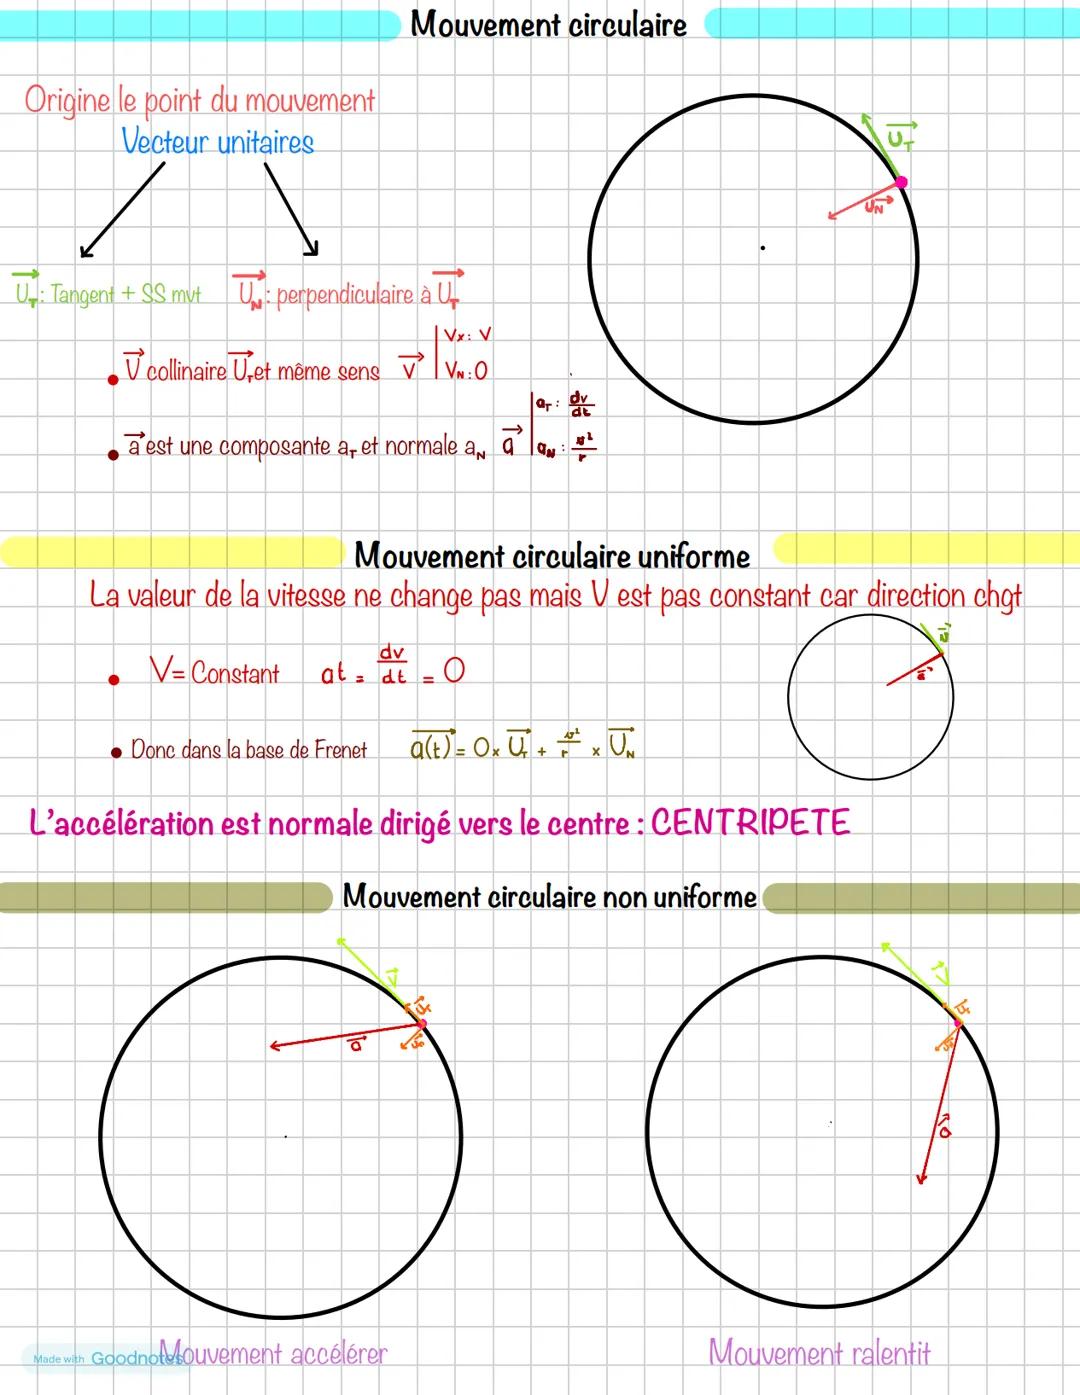 Mouvement circulaire
Origine le point du mouvement
Vecteur unitaires
U_T
U_N
U_T : Tangent + SS mvt
U_N : perpendiculaire à U_T
V collinaire U_T et même sens V | Vx : V
V_N : 0
a est une composante a_T et normale a_N a | a_T : dv/dt
a_N : v²/r
Mouvement circulaire uniforme
La valeur de la vitesse ne change pas mais V est pas constant car direction chgt
V = Constant at = dv/dt = 0
v
a
Donc dans la base de Frenet a(t) = 0 x U_T + v²/r x U_N
L'accélération est normale dirigé vers le centre : CENTRIPETE
Mouvement circulaire non uniforme
V
a
V
a
Mouvement accélérer
Mouvement ralentit
Made with Goodnotes